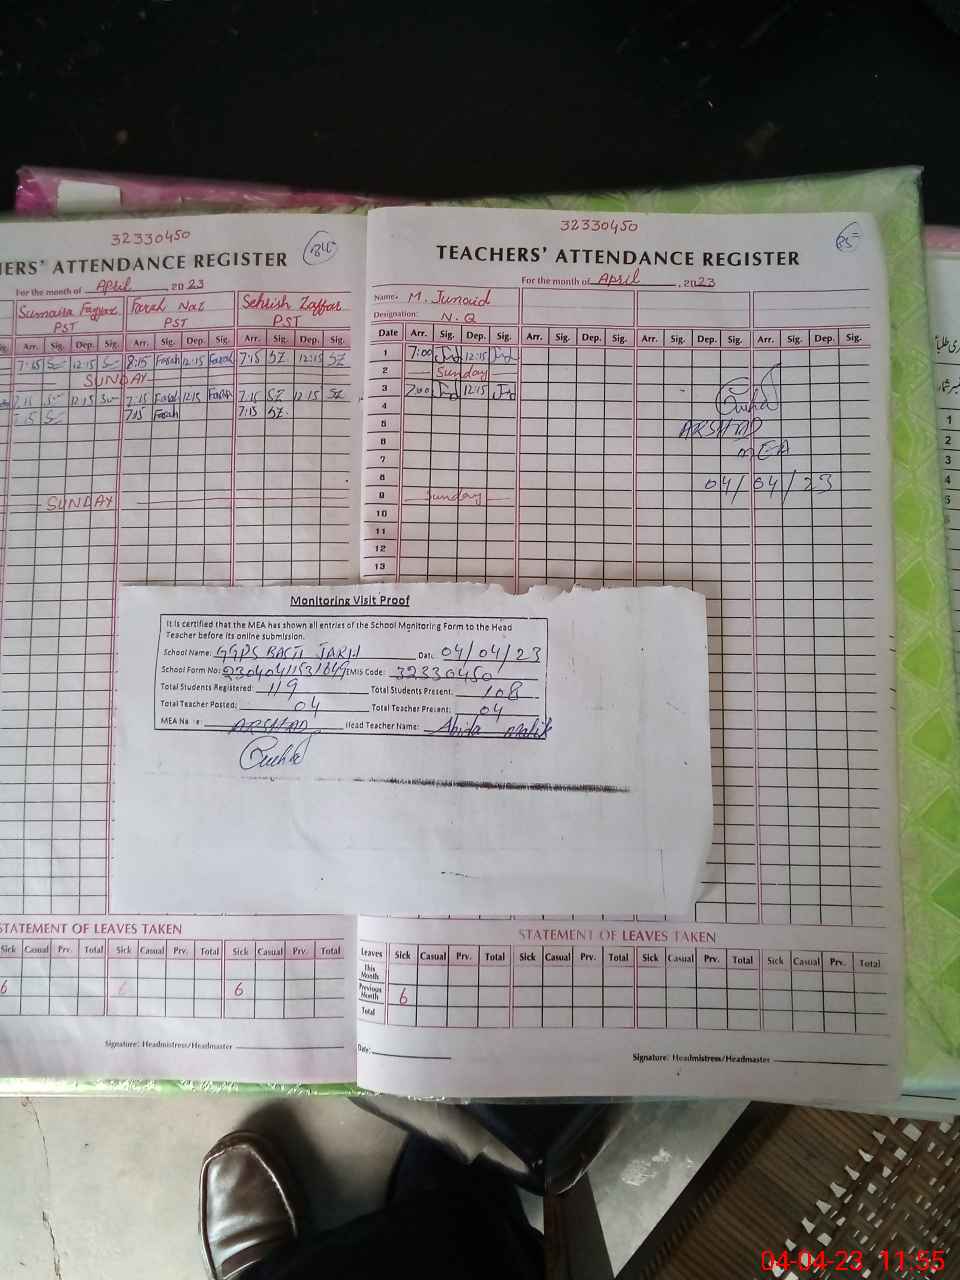 32330450
84
ERS' ATTENDANCE REGISTER
For the month of April, 2023
Sumaira Fayyaz Farah Naz Sehrish Zaffar
PST PST PST
Sig. Arr. Sig. Dep. Sig. Arr. Sig. Dep. Sig. Arr. Sig. Dep. Sig.
7:15 12:15 8:15 Farah 12:15 Farah 7:15 SZ 12:15 SZ
SUNDAY
7:15 12:15 7:15 Farah 12:15 Farah 7:15 SZ 12:15 SZ
7:15 7:15 Farah 7:15 SZ
SUNDAY
STATEMENT OF LEAVES TAKEN
Sick Casual Prv. Total Sick Casual Prv. Total Sick Casual Prv. Total
6 6 6
Signature: Headmistress/Headmaster
32330450
85
TEACHERS' ATTENDANCE REGISTER
For the month of April, 2023
Name: M. Junaid
Designation: N.Q
Date Arr. Sig. Dep. Sig. Arr. Sig. Dep. Sig. Arr. Sig. Dep. Sig. Arr. Sig. Dep. Sig.
1 7:00 12:15
2 Sunday
3 7:00 12:15
4
5 ARSHAD
6 MEA
7
8 04/04/23
9 Sunday
10
11
12
13
Monitoring Visit Proof
It is certified that the MEA has shown all entries of the School Monitoring Form to the Head
Teacher before its online submission.
School Name: GGPS BASTI JARH Date 04/04/23
School Form No: EMIS Code: 32330450
Total Students Registered: 119 Total Students Present: 108
Total Teacher Posted: 04 Total Teacher Present: 04
MEA Na e: ARSHAD Head Teacher Name: Abida Malik
STATEMENT OF LEAVES TAKEN
Leaves Sick Casual Prv. Total Sick Casual Prv. Total Sick Casual Prv. Total Sick Casual Prv. Total
This Month
Previous Month 6
Total
Date:
Signature: Headmistress/Headmaster
1
2
3
4
5
04-04-23 11:55